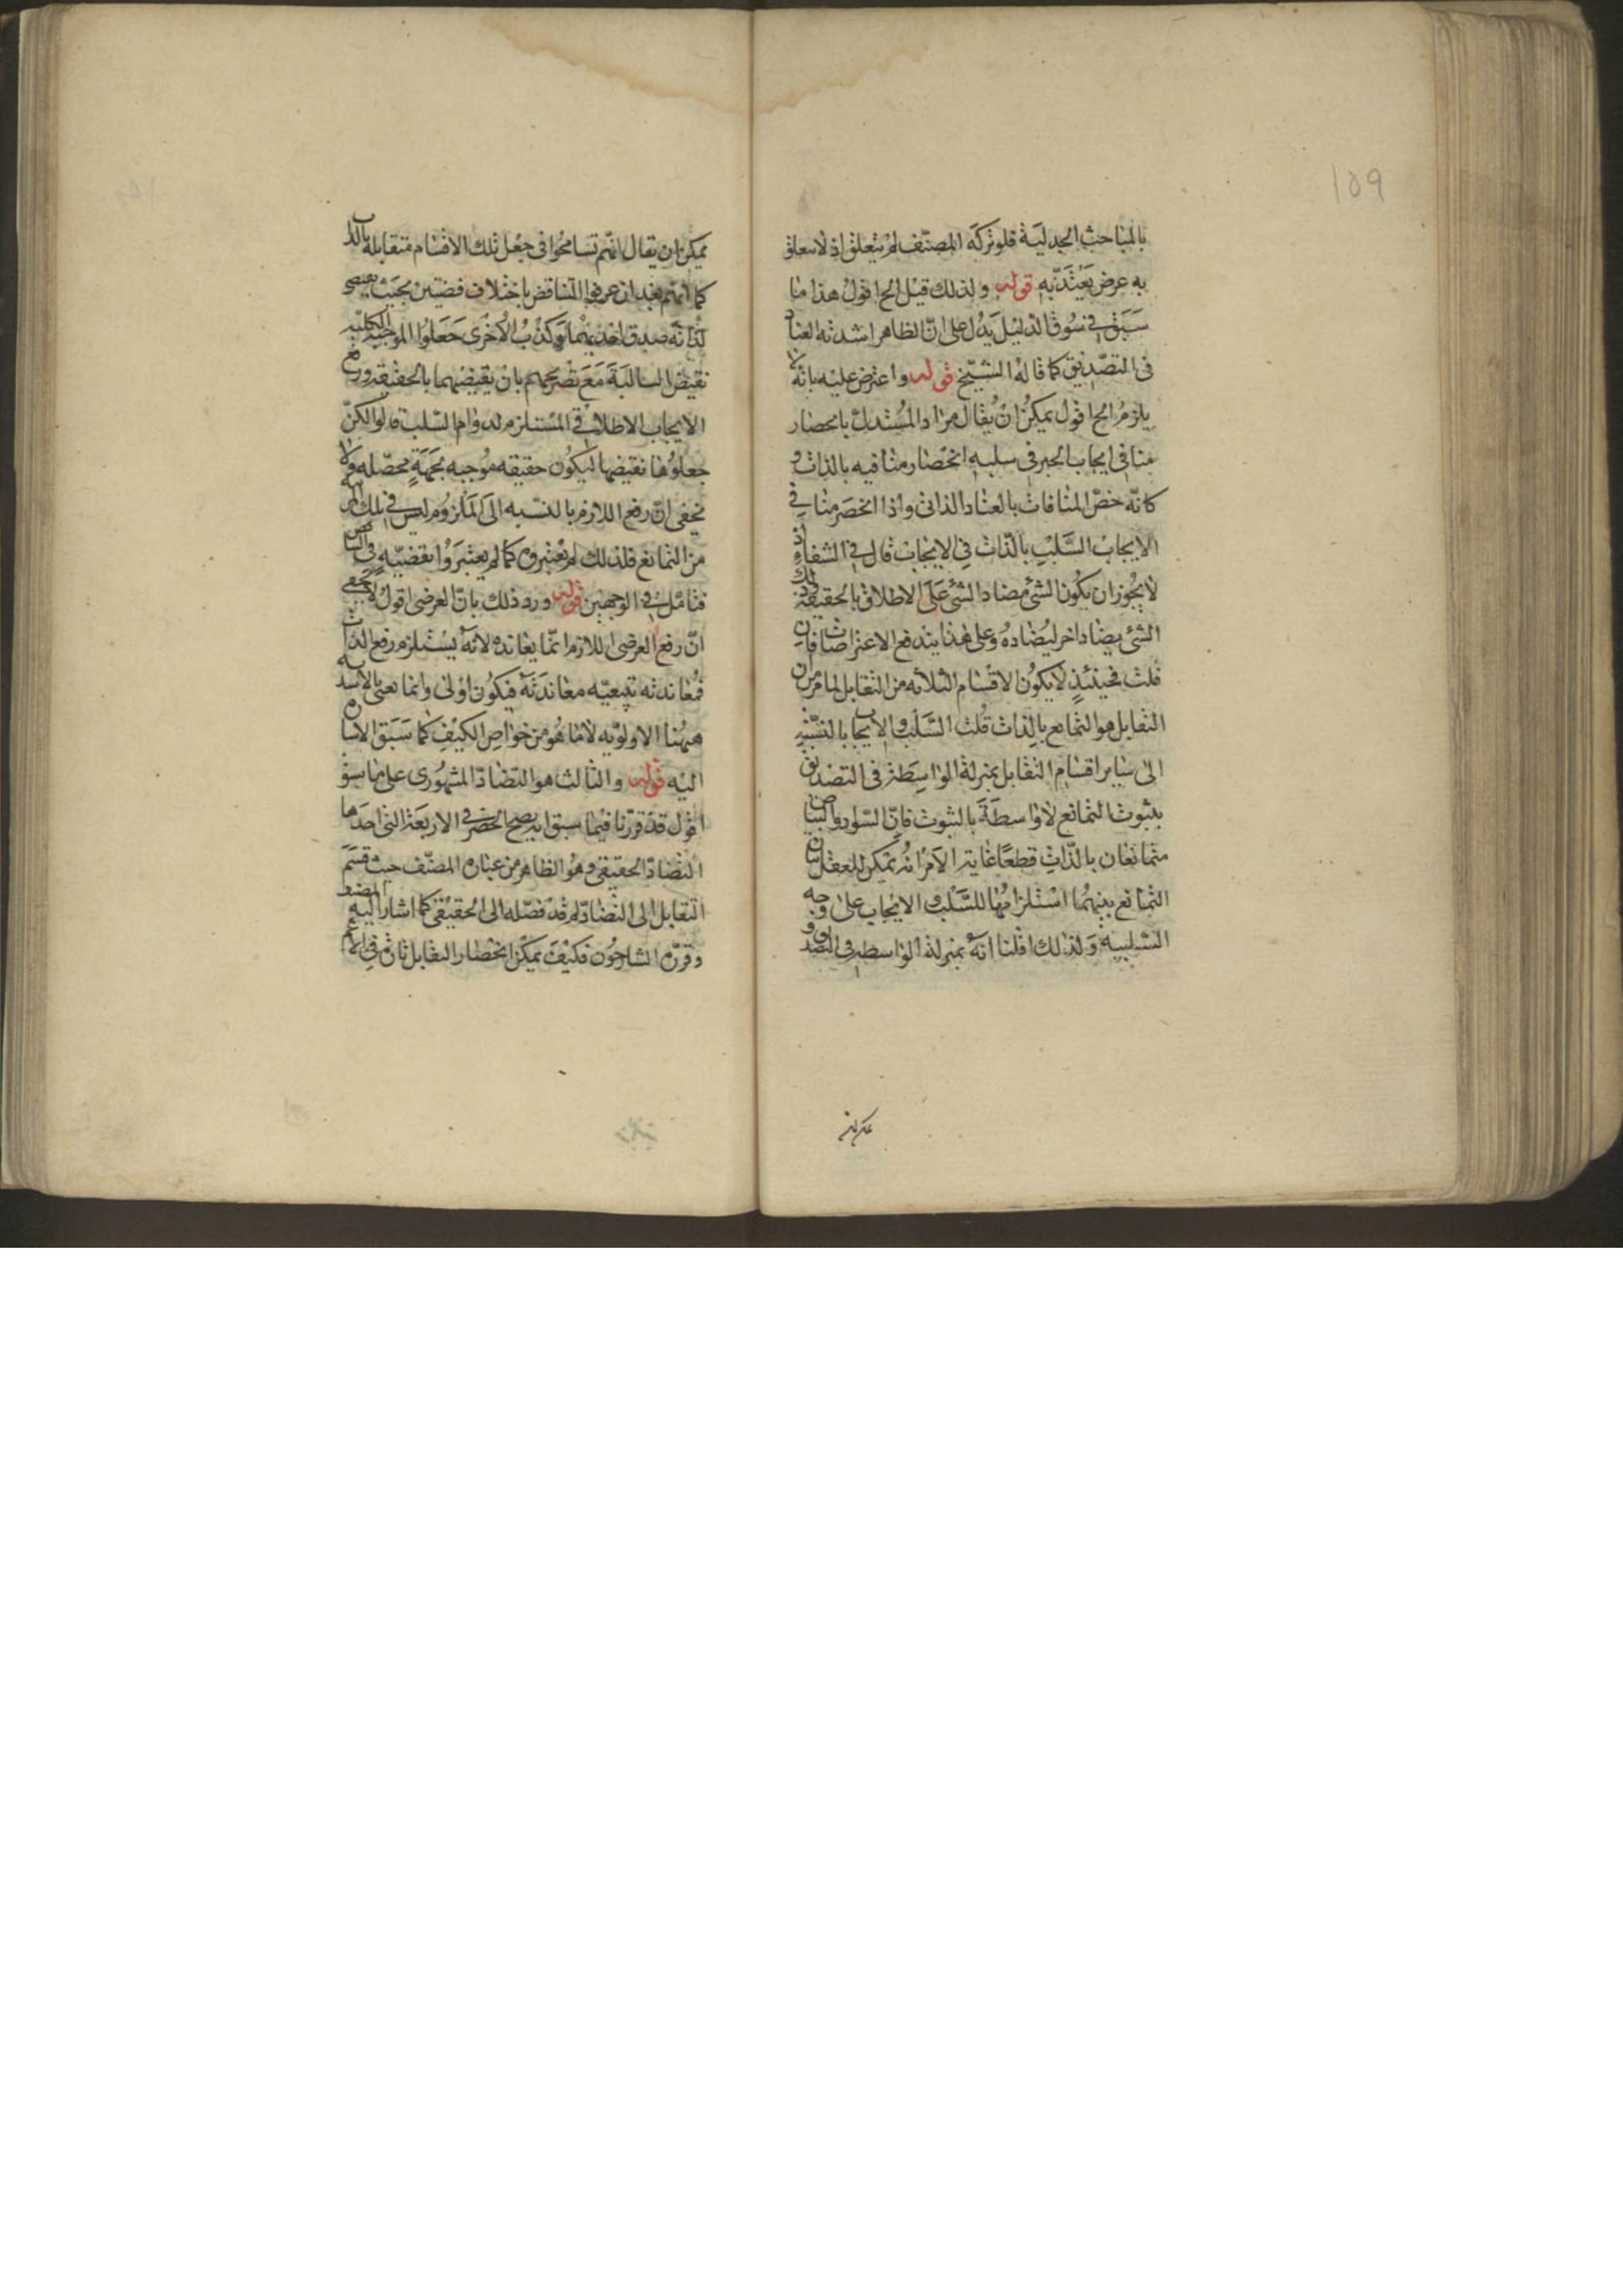 109
بالمباحث الجدلية فلو تركه المصنف لم يتعلق اذ لا يتعلق
به غرض يعتد به قوله ولذلك قيل الخ اقول هذا ما
سبق في سوق الدليل يدل على ان الظاهر اشدية العناد
في التصديق كما قاله الشيخ قوله واعترض عليه بانه لا
يلزم الخ اقول يمكن ان يقال مراد المستدل بانحصار
منافي ايجاب الخير في سلبه انحصار منافيه بالذات و
كانه خص المنافات بالعناد الذاتي واذا انحصر منافي
الايجاب السلب بالذات في الايجاب قال في الشفاء
لا يجوز ان يكون الشئ مضاد الشئ على الاطلاق بالحقيقة وذلك
الشئ يضاد اخر ليضاده وعلى هذا يندفع الاعتراضات فان
قلت فحينئذ لا يكون الاقسام الثلاثه من التقابل لما مر من ان
التقابل هو التمانع بالذات قلت السلب والايجاب بالنسبة
الى ساير اقسام التقابل بمنزلة الواسطة في التصديق
بثبوت التمانع لا واسطة بالثبوت فان السواد والبياض
متمانعان بالذات قطعا غاية الامر انه يمكن للعقل بيان
التمانع بينهما استلزامها للسلب والايجاب على وجه
السلبية ولذلك قلنا انه بمنزلة الواسطه في التصديق و
يمكن ان يقال انهم تسامحوا في جعل تلك الاقسام متقابله بالذات
كما انهم بعد ان عرفوا التناقض باختلاف قضتين بحيث يقتضي
لذاته صدق احديهما وكذب الاخرى جعلوا الموجبة الكلية
نقيض السالبة مع تصريحهم بان نقيضهما بالحقيقه رفع
الايجاب الاطلاقي المستلزم لدوام السلب قالوا لكن
جعلوها نقيضها ليكون حقيقه موجبه بجهة محصله ولا
يخفى ان رفع اللازم بالنسبه الى الملزوم ليس في تلك المرتبة
من التمانع فلذلك لم يعتبروه كما لم يعتبروا بقضيه
فتامل في الوجهين قوله ورد ذلك بان العرضي اقول لا يخفى
ان رفع العرضي اللازم انما يعانده لانه يستلزم رفع الذات
فمعاندته تبعيه معاندته فيكون اولى وانما يعني بالاشدية
ههنا الاولويه لا ما هو من خواص الكيف كما سبق الاشارة
اليه قوله والثالث هو التضاد المشهوري على ما سبق
اقول قد قررنا فيما سبق انه يصح الحصر في الاربعة التي احدها
التضاد الحقيقي وهو الظاهر من عبارة المصنف حيث قسم
التقابل الى التضاد ثم قد فصله الى الحقيقي كما اشار اليه المصنف
وقرره الشارحون فكيف يمكن انحصار التقابل ثان في